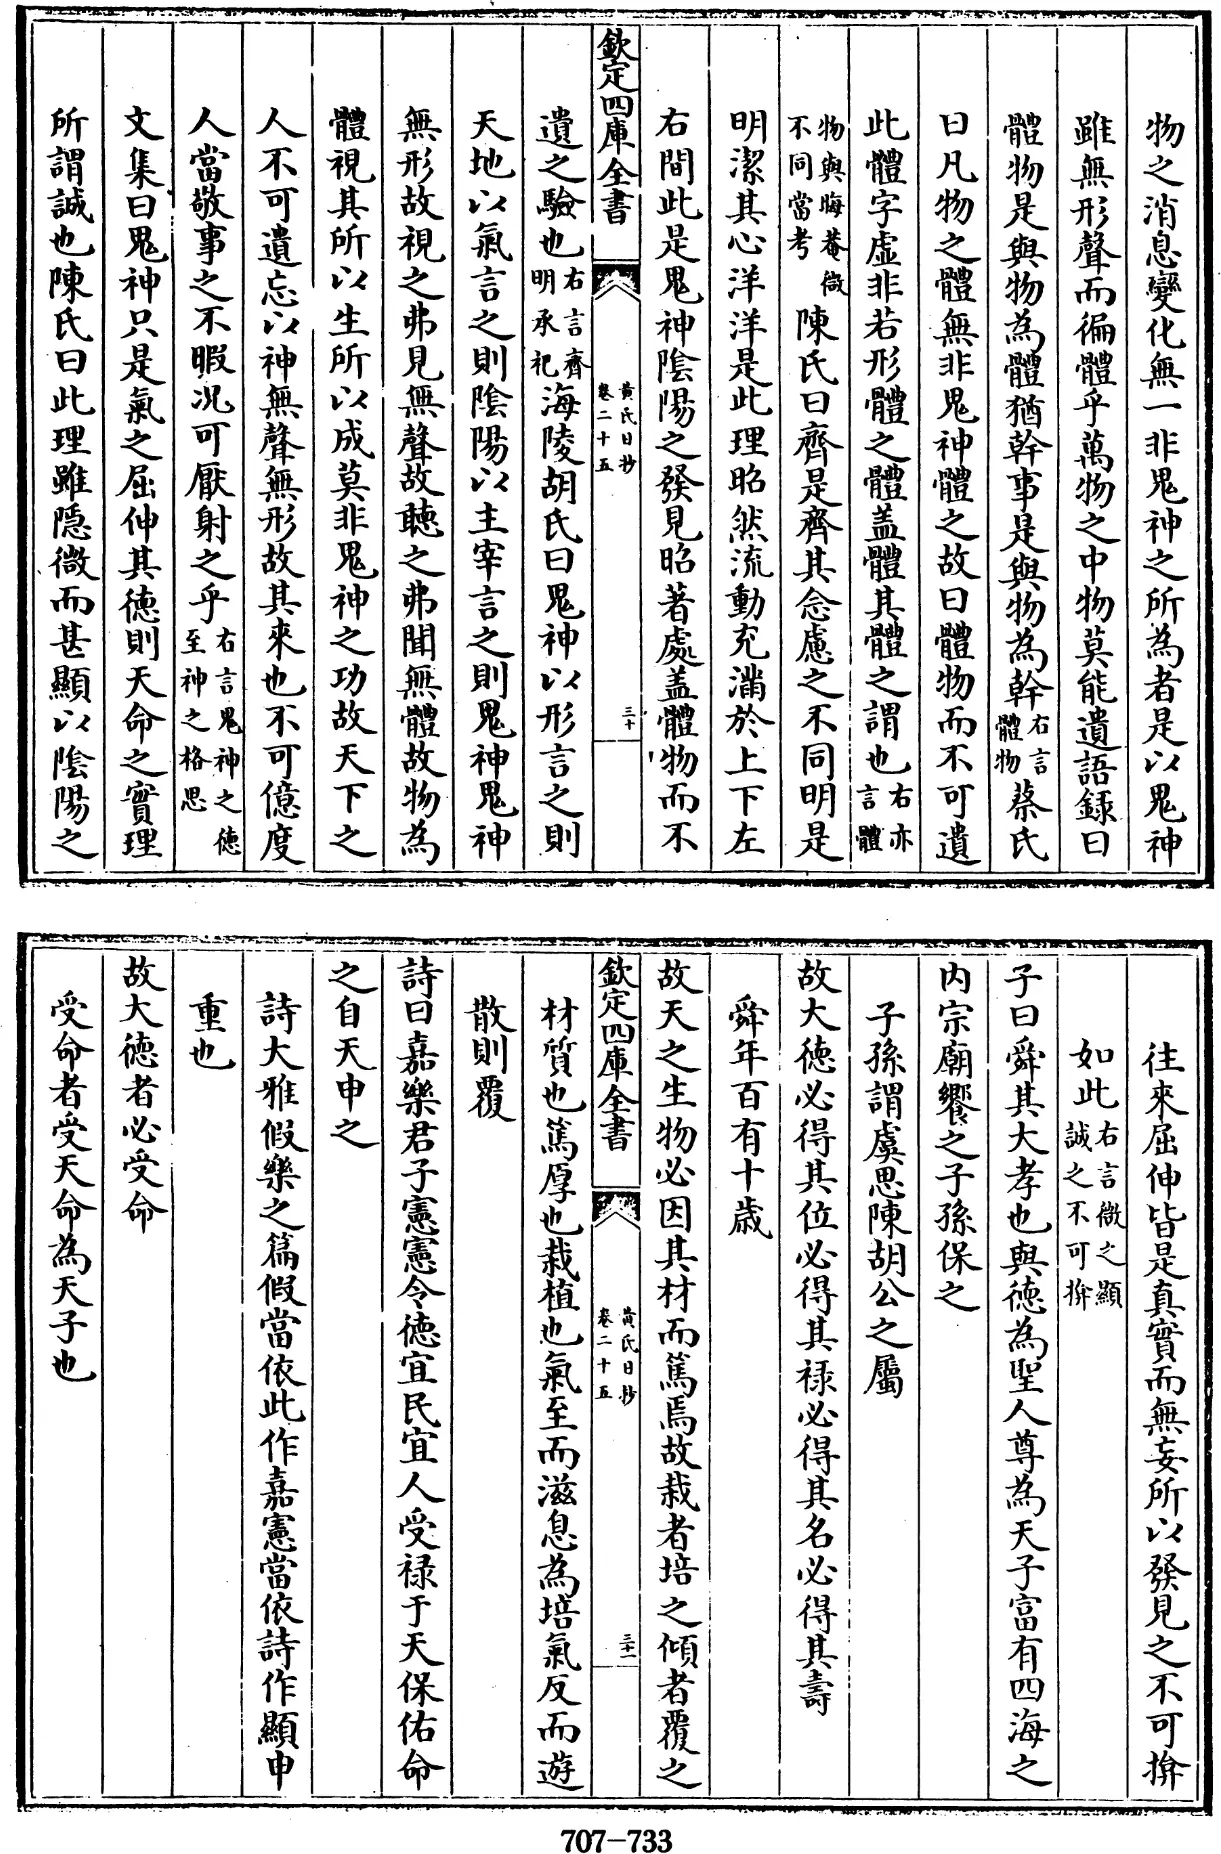 物之消息變化無一非鬼神之所為者是以鬼神
雖無形聲而徧體乎萬物之中物莫能遺語録曰
體物是與物為體猶幹事是與物為幹右言體物蔡氏
曰凡物之體無非鬼神體之故曰體物而不可遺
此體字虛非若形體之體盖體其體之謂也右亦言體
物與晦菴㣲不同當考陳氏曰齊是齊其念慮之不同明是
明潔其心洋洋是此理昭然流動充滿於上下左
右間此是鬼神陰陽之發見昭著處盖體物而不
欽定四庫全書
黃氏日抄
卷二十五
三十
遺之驗也右言齊明承祀海陵胡氏曰鬼神以形言之則
天地以氣言之則陰陽以主宰言之則鬼神鬼神
無形故視之弗見無聲故聽之弗聞無體故物為
體視其所以生所以成莫非鬼神之功故天下之
人不可遺忘以神無聲無形故其來也不可億度
人當敬事之不暇况可厭射之乎右言鬼神之德至神之格思
文集曰鬼神只是氣之屈伸其德則天命之實理
所謂誠也陳氏曰此理雖隱微而甚顯以陰陽之
往來屈伸皆是真實而無妄所以發見之不可揜
如此右言微之顯誠之不可揜
子曰舜其大孝也與德為聖人尊為天子富有四海之
内宗廟饗之子孫保之
子孫謂虞思陳胡公之屬
故大德必得其位必得其禄必得其名必得其壽
舜年百有十歲
故天之生物必因其材而篤焉故栽者培之傾者覆之
欽定四庫全書
黃氏日抄
卷二十五
三十一
材質也篤厚也栽植也氣至而滋息為培氣反而遊
散則覆
詩曰嘉樂君子憲憲令德宜民宜人受禄于天保佑命
之自天申之
詩大雅假樂之篇假當依此作嘉憲當依詩作顯申
重也
故大德者必受命
受命者受天命為天子也
707-733